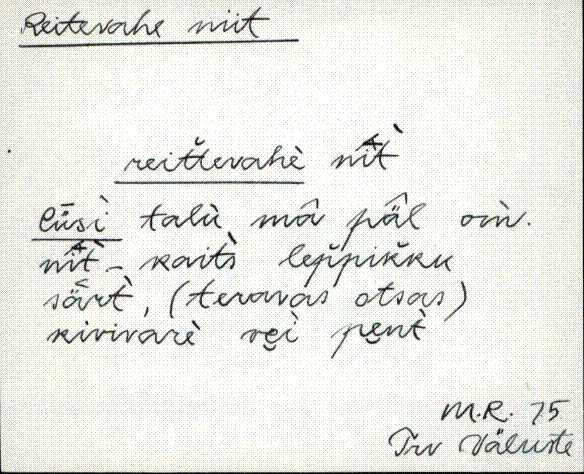 Reitevahe niit
reit̆t̆evahè nî̭t̀
lūsì talù mâ pä̂l oǹ.
nî̭t̀ – kait̀s lep̆p̆ikku
sä̆rt̀, (teravas otsas)
kivivarè vẹi pẹǹt̀
M.R. 75
Trv Väluste